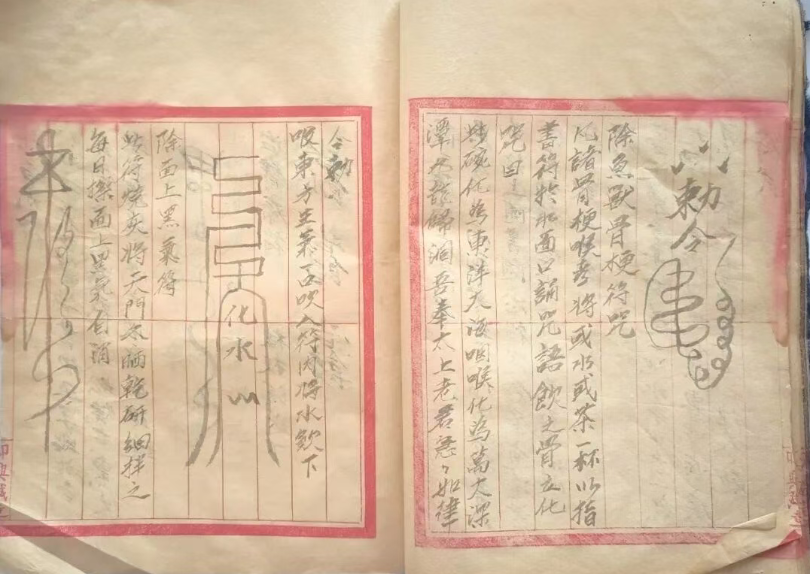 勅令
除魚獸骨梗符咒
凡諸骨梗喉者將或水或茶一杯以指
書符於水面口誦咒語飲之骨立化
咒曰
此碗化為東洋大海咽喉化為萬丈深
潭九龍歸洞吾奉太上老君急々如律
令勅
吸東方生氣一口吹入符內將水飲下
化水
除面上黑氣符
此符燒灰將天門冬晒乾研細拌之
每日擦面上黑氣自消